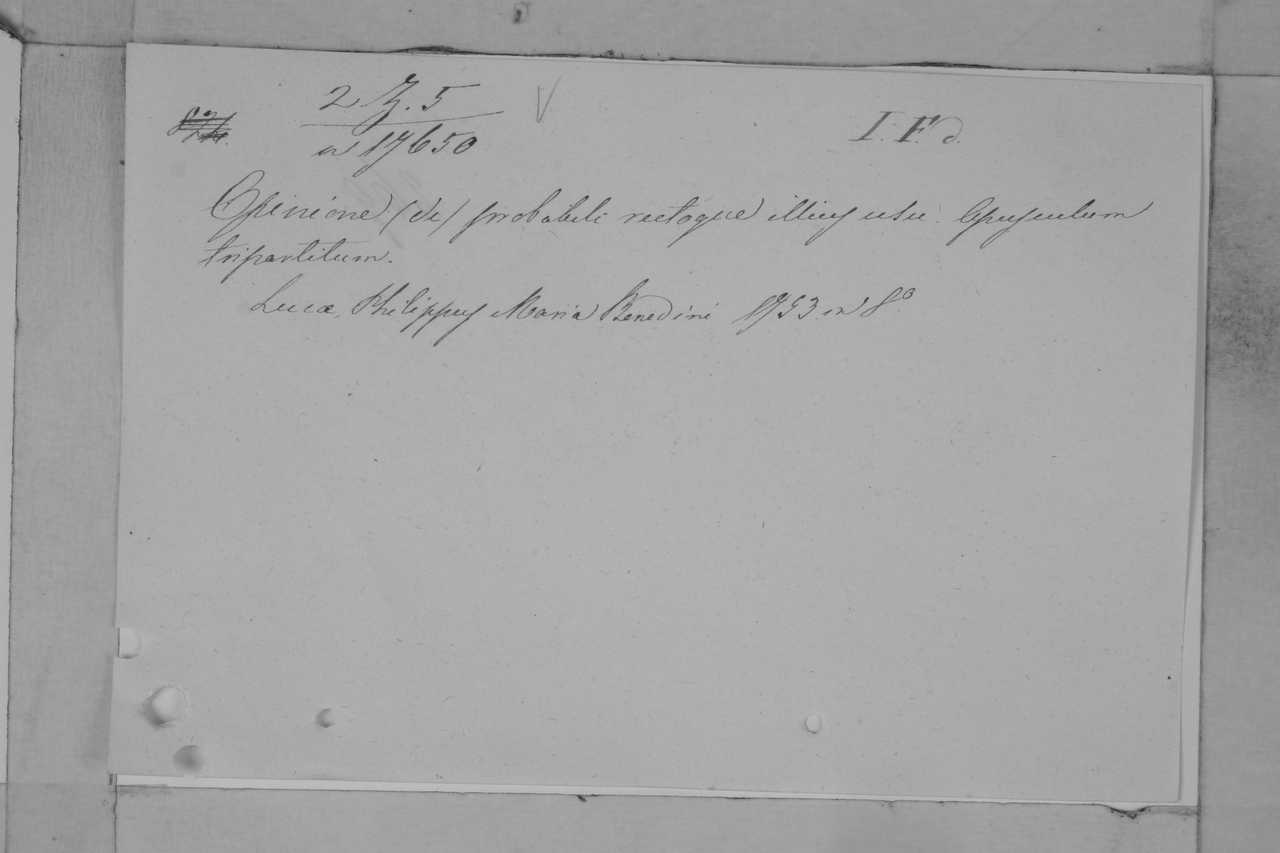 2 Z. 5
I. F. d.
a 17650
Opinione (de) probabili rectoque illius usu. Opusculum
tripartitum.
Lucæ, Philippus Maria Benedini 1753 in 8º